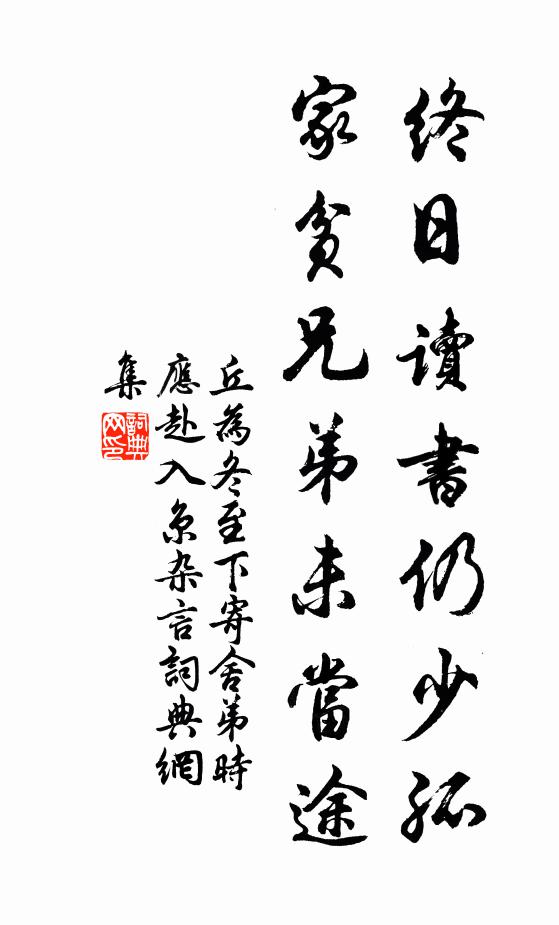 終日讀書仍少孤
家貧兄弟未當途
丘為冬至下寄舍弟時
應赴入京杂言詞典網
集
詞典
网印